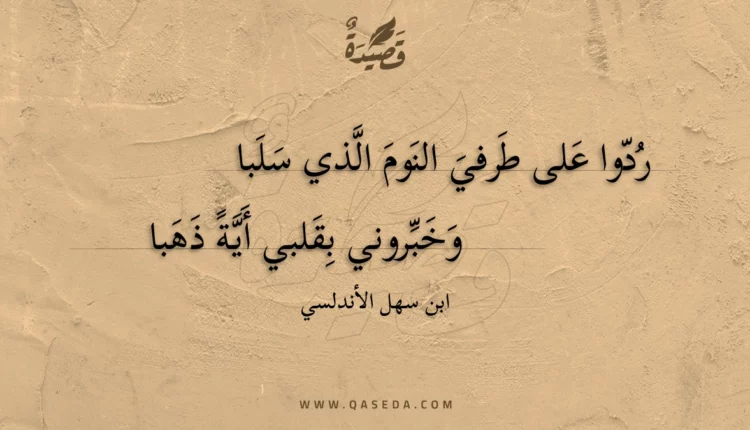 قَصِيْدَةٌ
رُدّوا عَلى طَرفيَ النَومَ الَّذي سَلَبا
وَخَبِّروني بِقَلبي أَيَّةً ذَهَبا
ابن سهل الأندلسي
WWW.QASEDA.COM